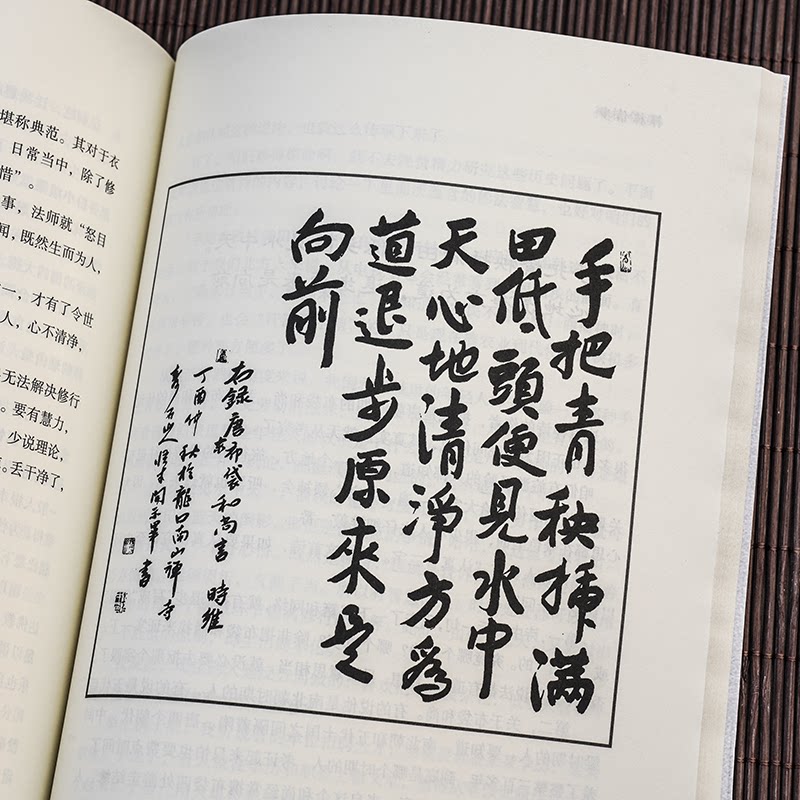 堪称典范。其对于衣
日常当中,除了修
惜”。
事,法师就“怒目
闻,既然生而为人,
一,才有了令世
人,心不清净,
无法解决修行
。要有慧力,
少说理论,
。丢干净了,
手把青秧插滿
田低頭便見水中
天心地清淨方為
道退步原來是
向前
右錄唐布袋和尚 時維
丁酉仲秋於龍口南山禪寺
書